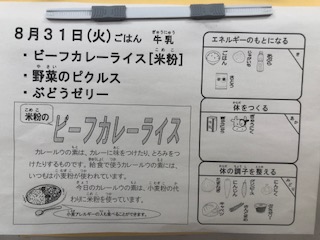 8月31日(火)ごはん 牛乳
・ビーフカレーライス[米粉]
・野菜のピクルス
・ぶどうゼリー
米粉の
ビーフカレーライス
カレールウの素は、カレーに味をつけたり、とろみをつ
けたりするものです。給食で使うカレールウの素には、
いつもは小麦粉が使われています。
今日のカレールウの素は、小麦粉の代
わりに米粉を使っています。
小麦アレルギーの人も食べることができます。
エネルギーのもとになる
ごはん
体をつくる
体の調子を整える